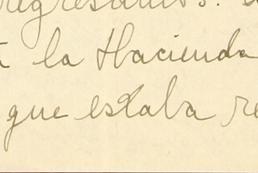 regresamos.
la Hacienda
que estaba re